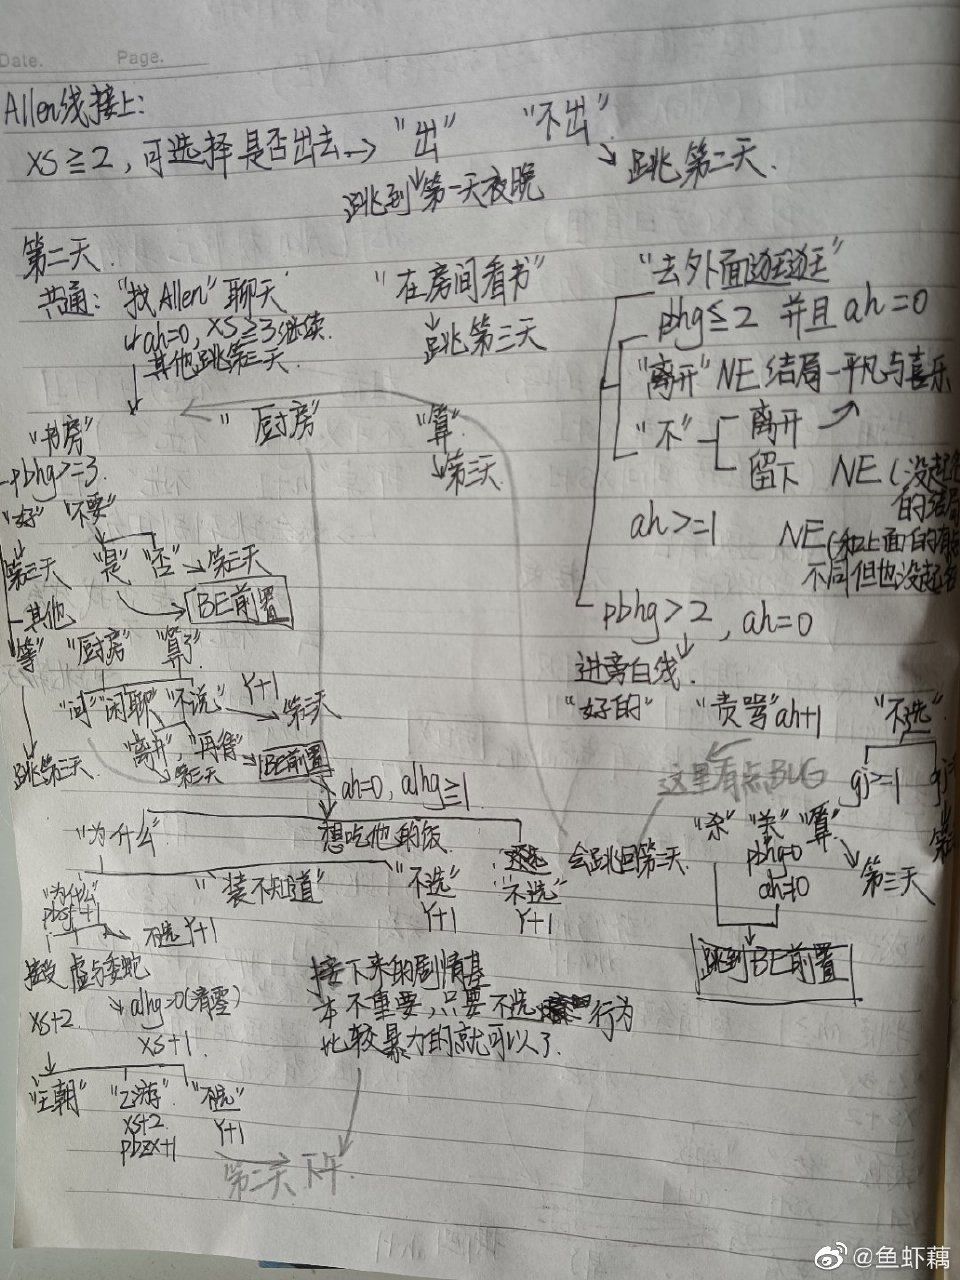 Date.
Page.
Allen线接上:
XS≧2, 可选择是否出去→ "出" "不出"
跳到第一天夜晚
跳第二天.
第二天.
共通: "找Allen"聊天
ah=0, XS≧3继续.
其他跳第三天.
"在房间看书"
跳第三天
"去外面逛逛"
phg≦2 并且 ah=0
"离开" NE 结局—平凡与喜乐
"不"
离开
留下 NE (没起
的结局
ah>=1 NE(和上面的有
不同但也没起
pbhg>2, ah=0
进旁白线.
"好的" "责骂"ah+1 "不选"
这里有点BUG
gj>=1
"杀" "关" "算"
pbhg=0
ah≠0
第三天
跳到BE前置
"书房" "厨房" "算"
第三天
pbhg>=3
"好" "不要"
第三天 "是" "否" 第三天
BE前置
其他
"等" "厨房" "算了"
"问" "闲聊" "不说" Y+1 第三天
跳第三天
"离开" "再管"
第三天
BE前置
ah=0, alhg≧1
"为什么" 想吃他的饭
会跳回第二天
"装不知道" "不选" "不选"
Y+1 Y+1
"为什么"
pbsf+1
不选 Y+1
虚与委蛇
xs+2
alhg=0(清零)
xs+1
"王朝" "乙游" "不选"
xs+2 Y+1
pbzx+1
接下来的剧情基
本不重要,只要不选 行为
比较暴力的就可以了.
第二天下午.
@鱼虾藕